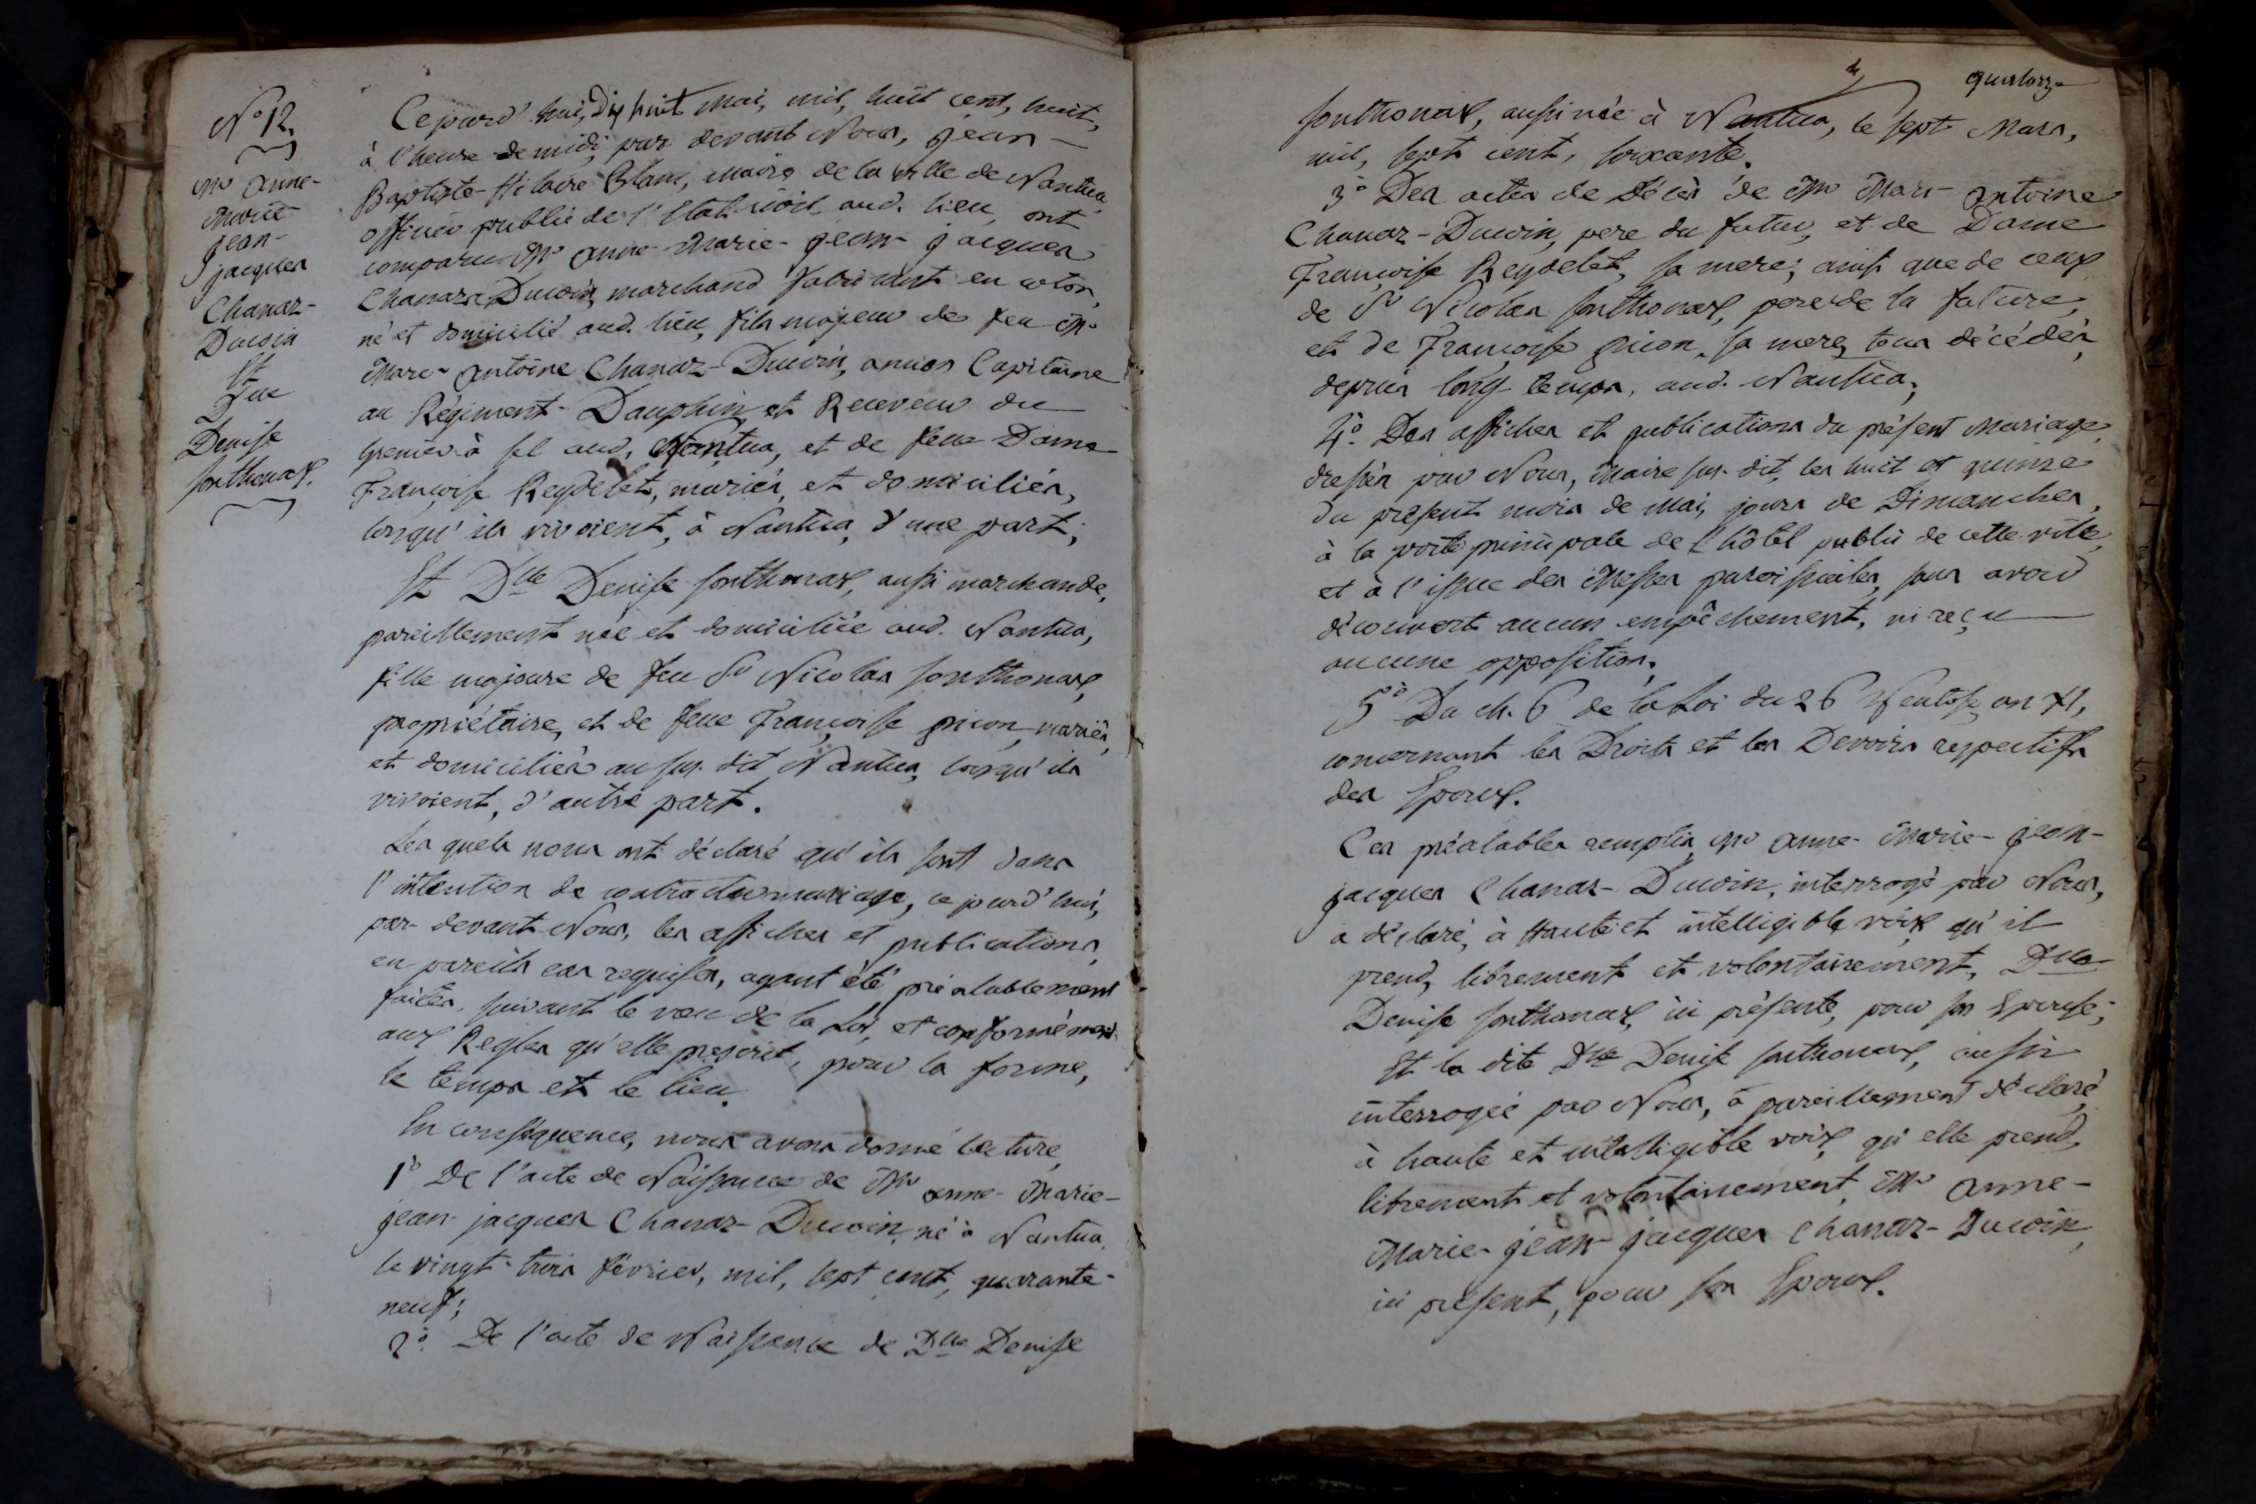 N.° 12.
Mr anne-
Marie-
jean-
jacques
Chanaz-
Ducoin
Et
Dlle
Denise
Sonthonax.
Ce jourd'hui, Dix huit Mai, mil, huit cent, huit,
à l'heure de midi, par devant Nous, Jean-
Baptiste-Hilaire Blanc, Maire de la Ville de Nantua,
officier public de l'Etat-civil aud. lieu, ont
comparu Mr anne-Marie-jean-jacques
Chanaz-Ducoin, marchand fabricant en coton,
né et domicilié aud. lieu, fils majeur de feu Mr
Marc-Antoine Chanaz-Ducoin, ancien Capitaine
au Régiment-Dauphin et Receveur du
Grenier à sel aud. Nantua, et de feue Dame
Françoise Reydelet, mariés, et domiciliés,
lorsqu'ils vivoient, à Nantua, d'une part;
Et Dlle Denise Sonthonax, aussi marchande,
pareillement née et domiciliée aud. Nantua,
fille majeure de feu Sr Nicolas Sonthonax,
propriétaire, et de feue Françoise picon, mariés,
et domiciliés au sus-dit Nantua, lorsqu'ils
vivoient, d'autre part.
Les quels nous ont déclaré qu'ils sont dans
l'intention de contracter mariage, ce jourd'hui,
par-devant Nous, les affiches et publications,
en pareils cas requises, ayant été préalablement
faites, suivant le vœu de la Loi, et conformément
aux Règles qu'elle prescrit, pour la forme,
le temps et le lieu.
En conséquence, nous avons donné lecture,
1° De l'acte de Naissance de Mr anne-Marie-
jean-jacques Chanaz-Ducoin, né à Nantua,
le vingt-trois février, mil, sept cent, quarante-
neuf;
2° De l'acte de Naissance de Dlle Denise
quatorze
Sonthonax, aussi née à Nantua, le sept Mars,
mil, sept cent, soixante.
3° Des actes de Décès de Mr Marc-Antoine
Chanaz-Ducoin, pere du futur, et de Dame
Françoise Reydelet, sa mere; ainsi que de ceux
de Sr Nicolas Sonthonax, pere de la future,
et de Françoise picon, sa mere, tous décédés,
depuis long temps, aud. Nantua;
4° Des affiches et publications du présent Mariage,
dressés par Nous, Maire sus-dit, les huit et quinze
du présent mois de Mai, jours de Dimanches,
à la porte principale de l'hôtel public de cette ville,
et à l'issue des Messes paroissiales, sans avoir
découvert aucun empêchement, ni reçu
aucune opposition.
5° Du ch. 6 de la Loi du 26 Ventose, an XI,
concernant les Droits et les Devoirs respectifs
des Epoux.
Ces préalables remplis, Mr anne-Marie-jean-
jacques Chanaz-Ducoin, interrogé par Nous,
a déclaré, à Haute et intelligible voix, qu'il
prend, librement et volontairement, Dlle
Denise Sonthonax, ici présente, pour son Epouse;
Et la dite Dlle Denise Sonthonax, aussi
interrogée par Nous, a pareillement déclaré,
à haute et intelligible voix, qu'elle prend,
librement et volontairement, Mr anne-
Marie-jean-jacques Chanaz-Ducoin,
ici présent, pour son Epoux.